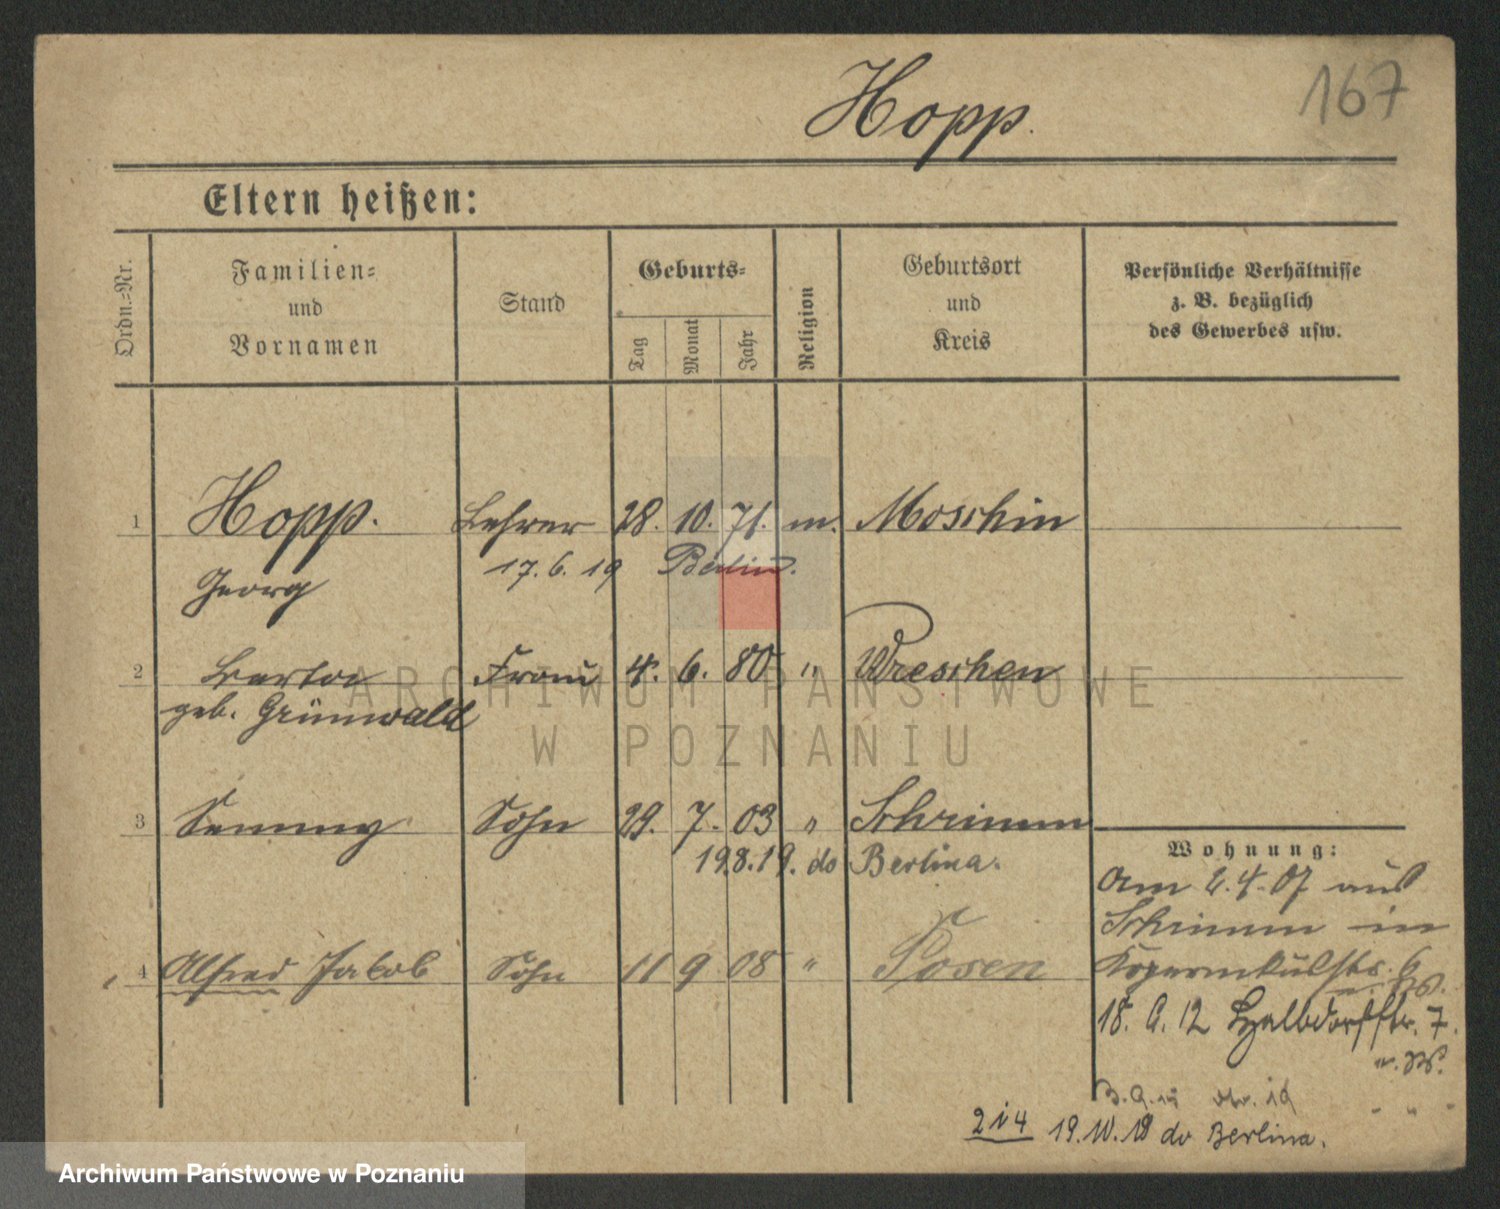 Hopp.
167
Eltern heißen:
Ordn.-Nr.
Familien-
und
Vornamen
Stand
Geburts-
Tag
Monat
Jahr
Religion
Geburtsort
und
Kreis
Persönliche Verhältnisse
z. B. bezüglich
des Gewerbes usw.
1 Hopp. Lehrer 28. 10. 71. m. Moschin
Georg 17. 6. 19 Berlin.
2 Frau 4. 6. 80 " Wreschen
geb. Grünwald
3 Semmy Sohn 29. 7. 03 " Schrimm
19.8.19. do Berlina.
4 Alfred Jakob Sohn 11 9 08 " Posen
Wohnung:
Am 2.4.07 aus
Schrimm in
6
18. 9. 12 Halbdorfstr. 7.
2 i 4 19. 10. 19 do Berlina.
ARCHIWUM PAŃSTWOWE
W POZNANIU
Archiwum Państwowe w Poznaniu